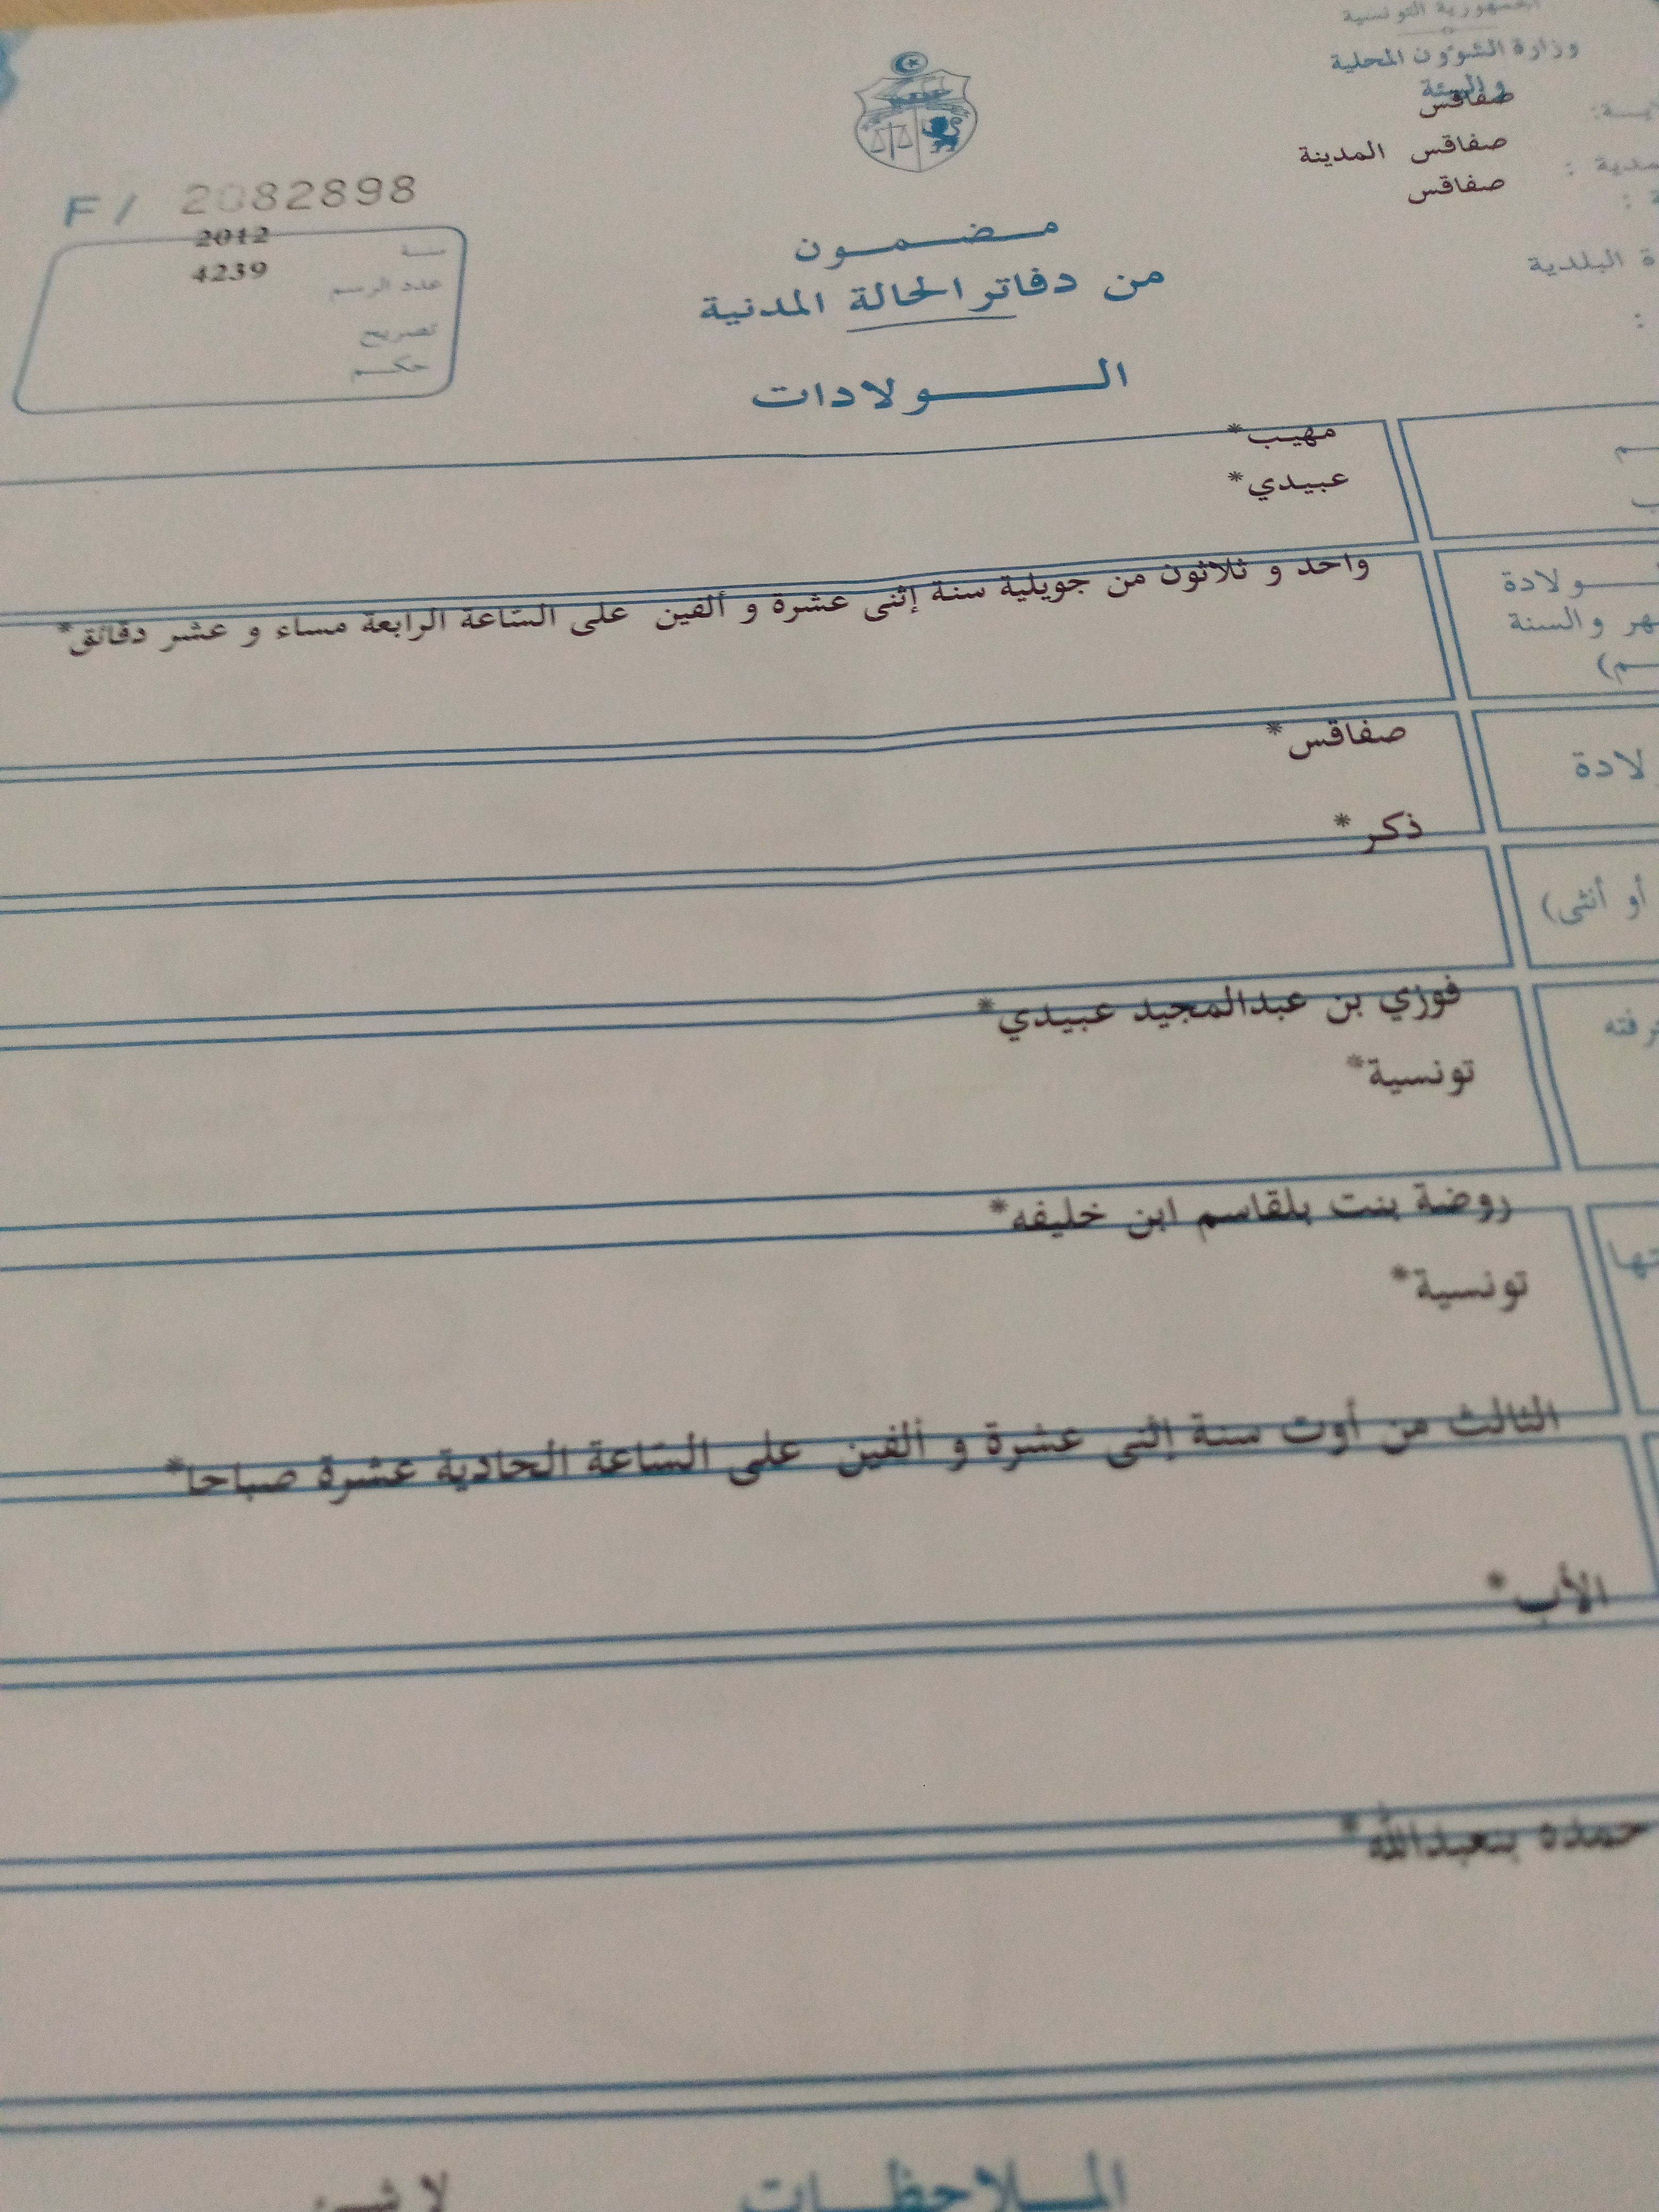 الجمهورية التونسية
وزارة الشؤون المحلية
و البيئة
صفاقس
صفاقس المدينة
صفاقس
ة البلدية
F/ 2082898
سنة 2012
عدد الرسم 4239
تصريح
حكم
مضمون
من دفاتر الحالة المدنية
الولادات
مهيب*
عبيدي*
واحد و ثلاثون من جويلية سنة إثنى عشرة و ألفين على الساعة الرابعة مساء و عشر دقائق*
ولادة
هر والسنة
صفاقس*
لادة
ذكر*
أو أنثى)
فوزي بن عبدالمجيد عبيدي*
رفته
تونسية*
روضة بنت بلقاسم ابن خليفه*
تها
تونسية*
الثالث من أوت سنة إثنى عشرة و ألفين على الساعة الحادية عشرة صباحا*
الأب*
حمده بنعبدالله*
الملاحظات